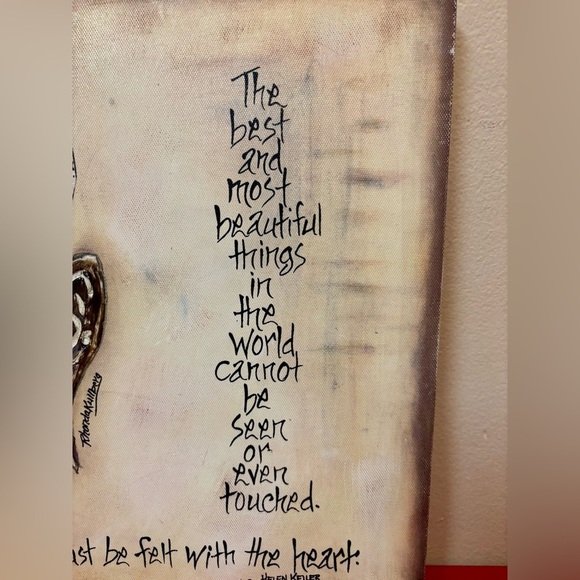 The
best
and
most
beautiful
things
in
the
world
cannot
be
seen
or
even
touched.
ust be felt with the heart.
HELEN KELLER